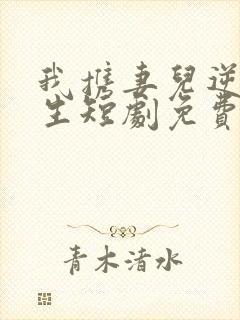 我携妻兒逆
生短劇免費
青木清水